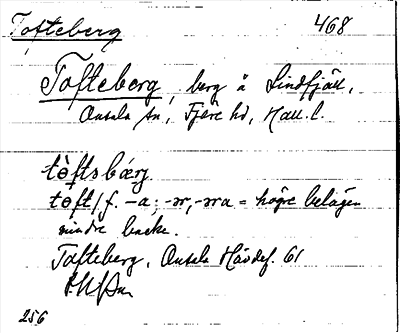 Tofteberg
468
Tofteberg, berg å Lindfjäll,
Onsala sn, Fjäre hd, Hall. l.
tòftsbǽrg
tɵft / f. -a; -ər, -əra = högre belägen
mindre backe.
Tofteberg. Onsala Hävdef. 61
256